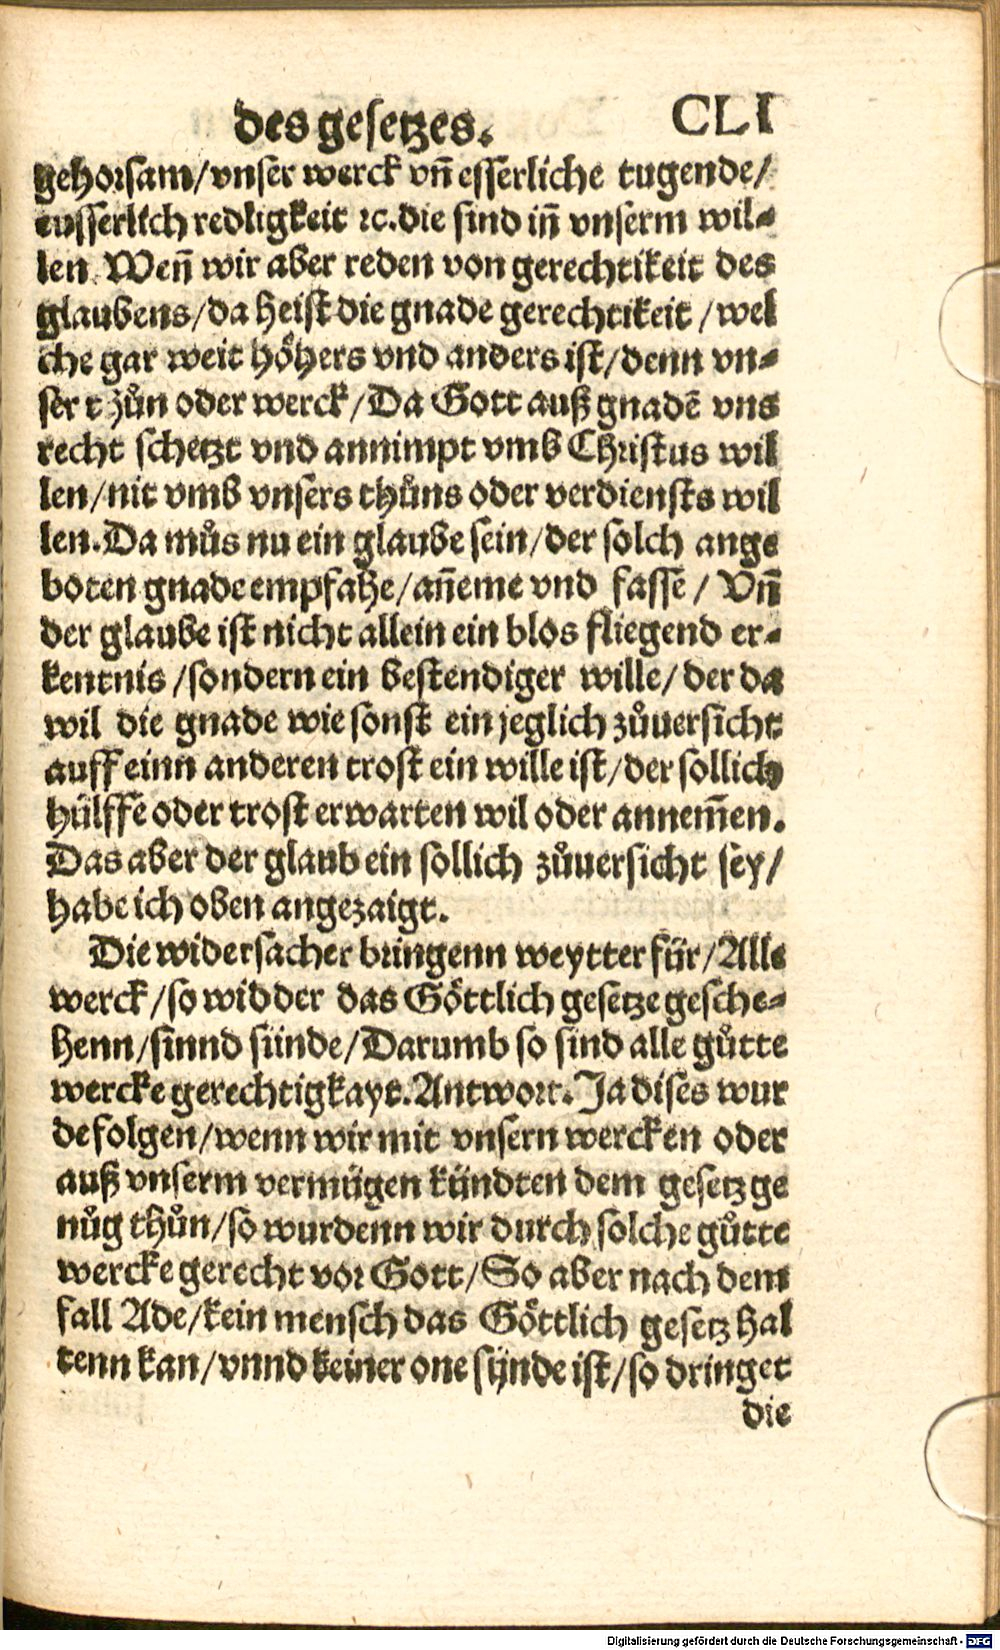 des gesetzes. CLI
gehorsam/vnser werck vñ esserliche tugende/
eusserlich redligkeit ꝛc. die sind iñ vnserm wil-
len. Weñ wir aber reden von gerechtikeit des
glaubens/da heist die gnade gerechtikeit /wel
che gar weit höhers vnd anders ist/denn vn-
ser t zůn oder werck/Da Gott auß gnadē vns
recht schetzt vnd annimpt vmb Christus wil
len/nit vmb vnsers thůns oder verdiensts wil
len. Da můs nu ein glaube sein/der solch ange
boten gnade empfahe/añeme vnd fasse / Vñ
der glaube ist nicht allein ein blos fliegend er-
kentnis /sondern ein bestendiger wille/der da
wil die gnade wie sonst ein jeglich zůuersicht
auff einn anderen trost ein wille ist/der sollich
hülffe oder trost erwarten wil oder annem̃en.
Das aber der glaub ein sollich zůuersicht sey/
habe ich oben angezaigt.
Die widersacher bringenn weytter für/Alle
werck/so widder das Göttlich gesetze gesche-
henn/sinnd sünde/Darumb so sind alle gůtte
wercke gerechtigkayt. Antwort. Ja dises wur
de folgen/wenn wir mit vnsern wercken oder
auß vnserm vermügen kündten dem gesetz ge
nůg thůn/so wurdenn wir durch solche gůtte
wercke gerecht vor Gott/So aber nach dem
fall Ade/kein mensch das Göttlich gesetz hal
tenn kan/vnnd keiner one sünde ist/so dringet
die
Digitalisierung gefördert durch die Deutsche Forschungsgemeinschaft - DFG